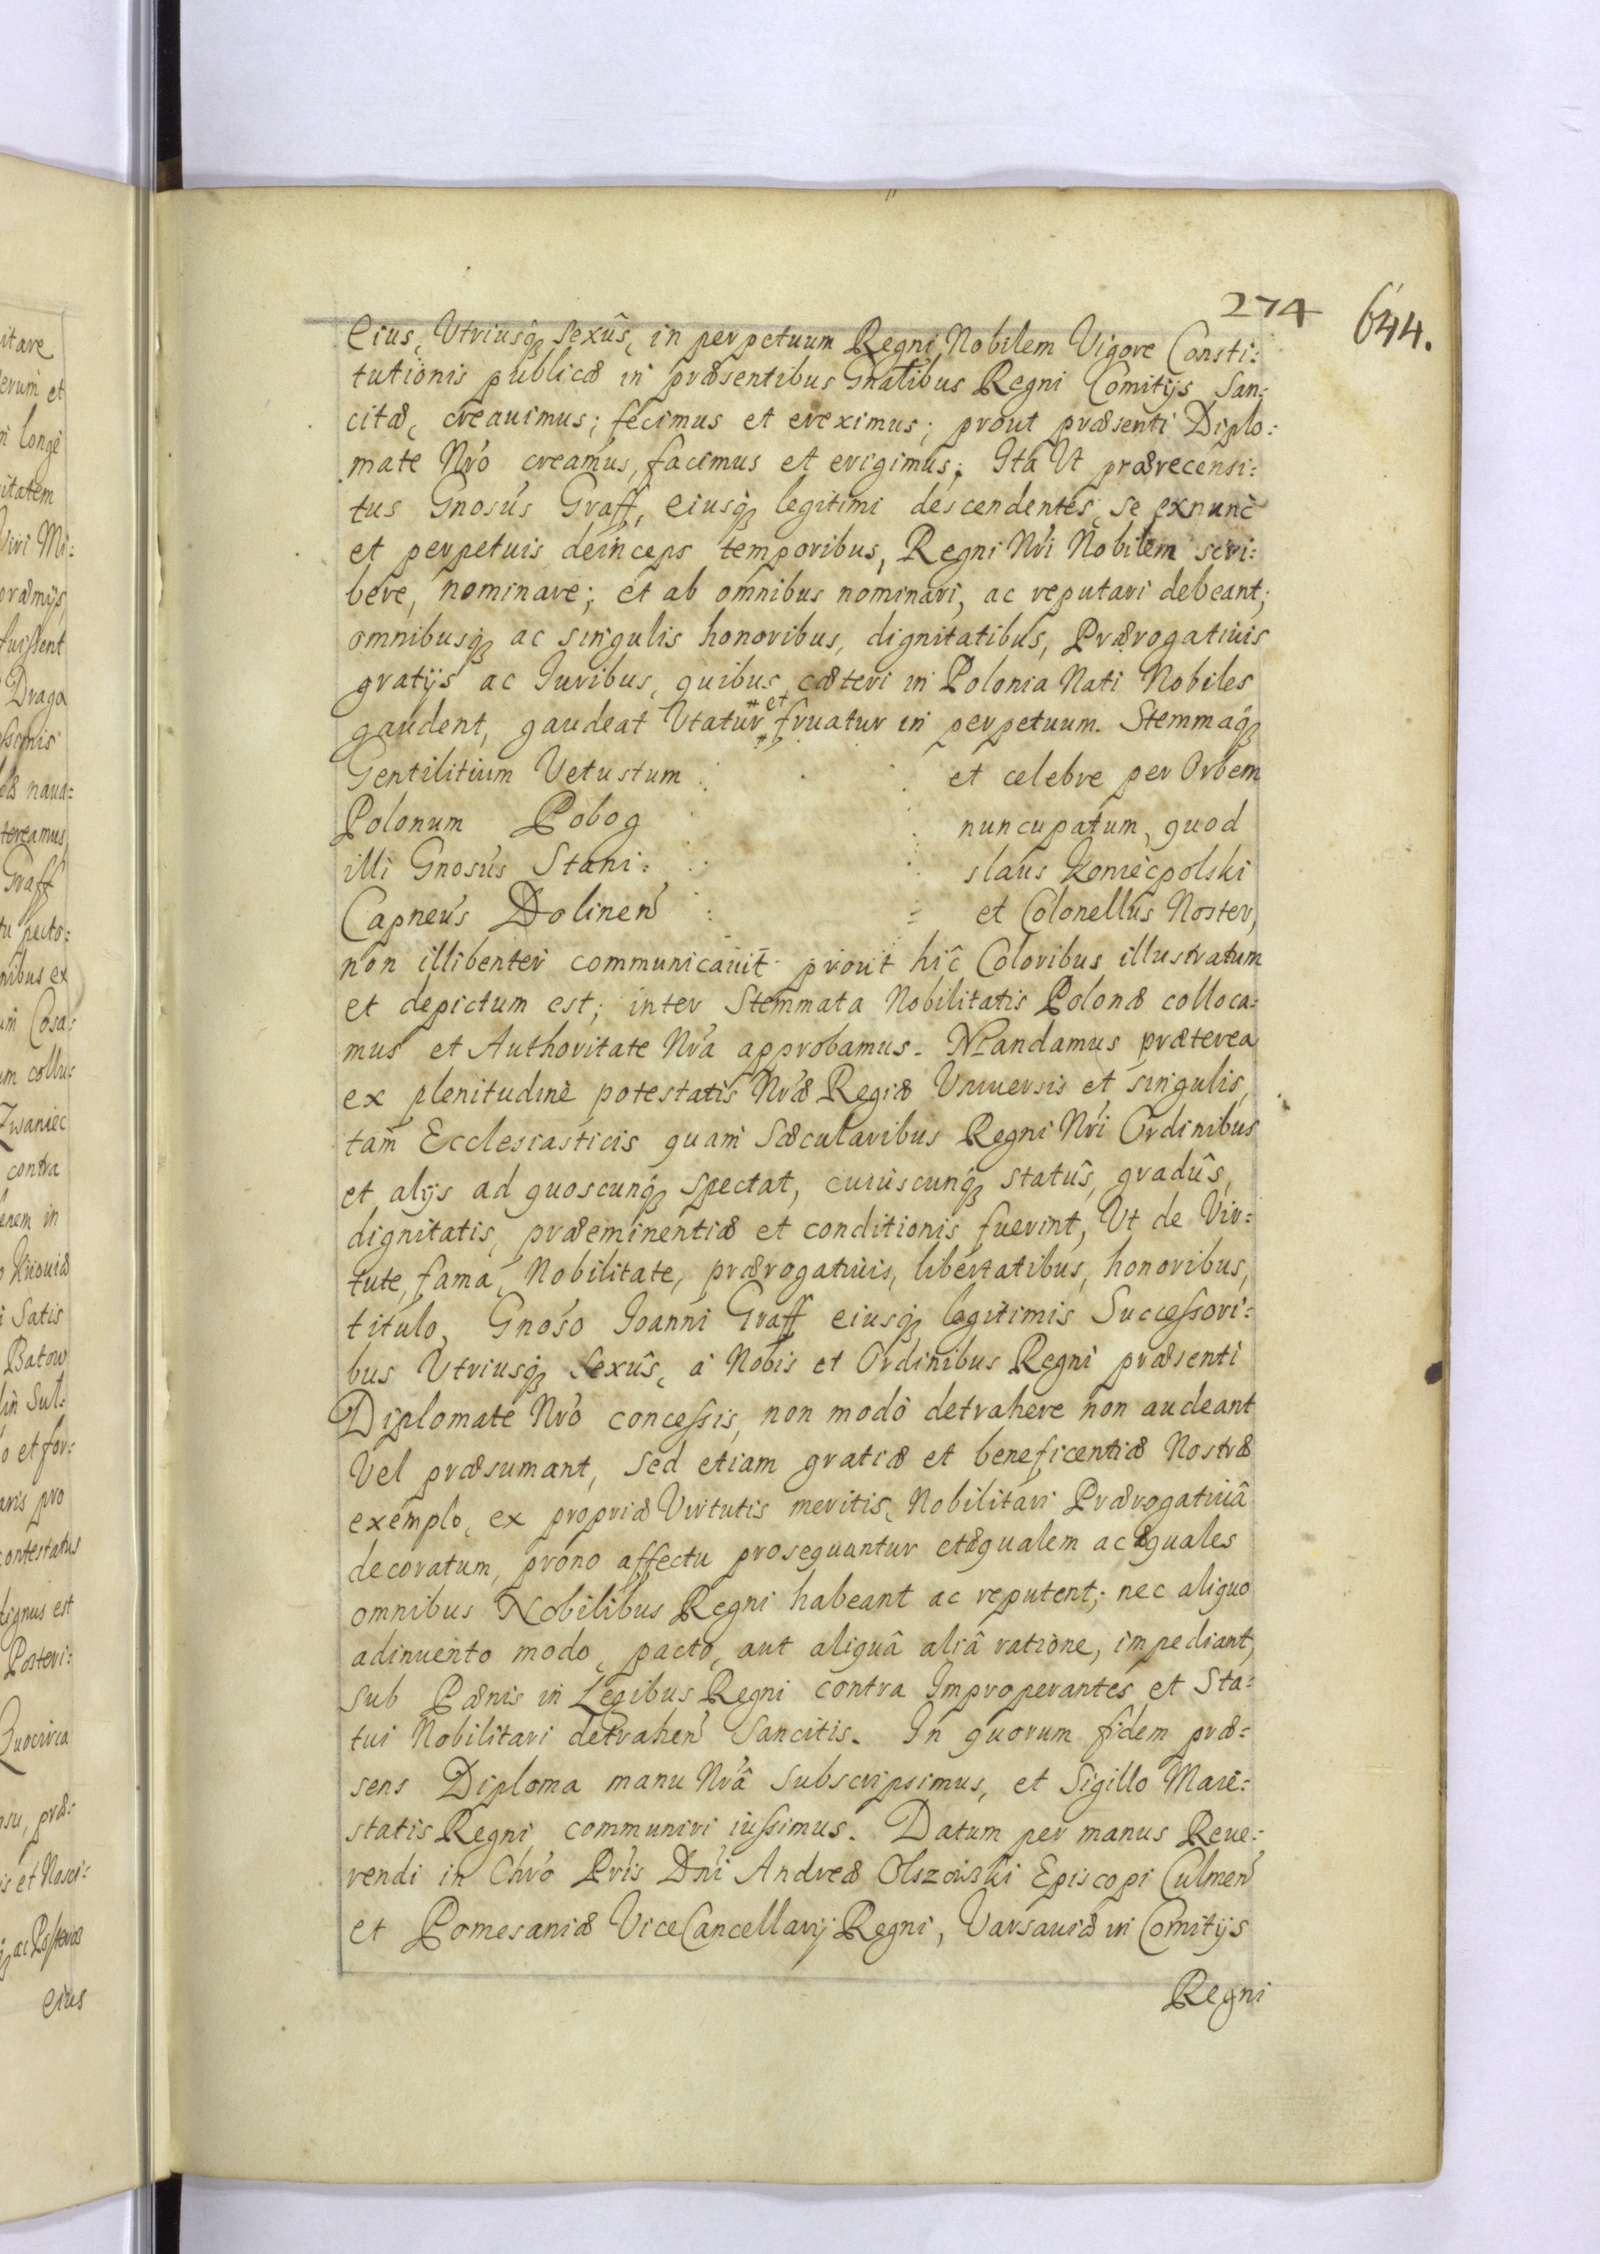 274 644.
Eius, Utriusq́ Sexûs, in perpetuum Regni Nobilem Vigore Consti:
tutionis publicæ in præsentibus Gnalibus Regni Comitijs San:
citæ, creauimus; fecimus et ereximus; prout præsenti Diplo:
mate Nŕo creamus, facimus et erigimus; Ita Ut prærecensi:
tus Gnosús Graff, Eiusq́ legitimi descendentes, se exnunc
et perpetuis deinceps temporibus, Regni Nŕi Nobilem scri:
bere, nominare; et ab omnibus nominari, ac reputari debeant;
omnibusq́ ac singulis honoribus, dignitatibus, Prærogatiuis
gratijs ac Iuribus, quibus cæteri in Polonia Nati Nobiles
gaudent, gaudeat Utatur et fruatur in perpetuum. Stemmaq́
Gentilitium Vetustum et celebre per Orbem
Polonum Pobog nuncupatum, quod
illi Gnosús Stani: slaus Koniecpolski
Capneús Dolineń et Colonellus Noster,
non illibenter communicauit prout hîc Coloribus illustratum
et depictum est; inter Stemmata Nobilitatis Polonæ colloca:
mus et Authoritate Nŕa approbamus. Mandamus præterea
ex plenitudine potestatis Nŕæ Regiæ Vniuersis et singulis,
tam Ecclesiasticis quam Sæcularibus Regni Nŕi Ordinibus
et alijs ad quoscunq́ spectat, cuiuscunq́ statûs, gradûs,
dignitatis, præeminentiæ et conditionis fuerint, Ut de Vir:
tute, fama, Nobilitate, prærogatiuis, libertatibus, honoribus,
titulo, Gnośo Ioanni Graff eiusq́ legitimis Successori:
bus Utriusq́ Sexûs, á Nobis et Ordinibus Regni præsenti
Diplomate Nŕo concessis, non modò detrahere non audeant
Vel præsumant, sed etiam gratiæ et beneficentiæ Nostræ
exemplo, ex propriæ Virtutis meritis, Nobilitari Prærogatiuâ
decoratum, prono affectu prosequantur et æqualem ac æquales
omnibus Nobilibus Regni habeant ac reputent; nec aliquo
adinuento modo, pacto, aut aliquâ aliâ ratione, impediant,
sub Pænis in Legibus Regni contra Improperantes et Sta:
tui Nobilitari detraheń Sancitis. In quorum fidem præ:
sens Diploma manu Nŕâ subscripsimus, et Sigillo Maie:
statis Regni communiri iussimus. Datum per manus Reue:
rendi in Chŕo Pŕis Dńi Andreæ Olszowski Episcopi Culmeń
et Pomesaniæ ViceCancellarij Regni, Varsauiæ in Comitijs
Regni